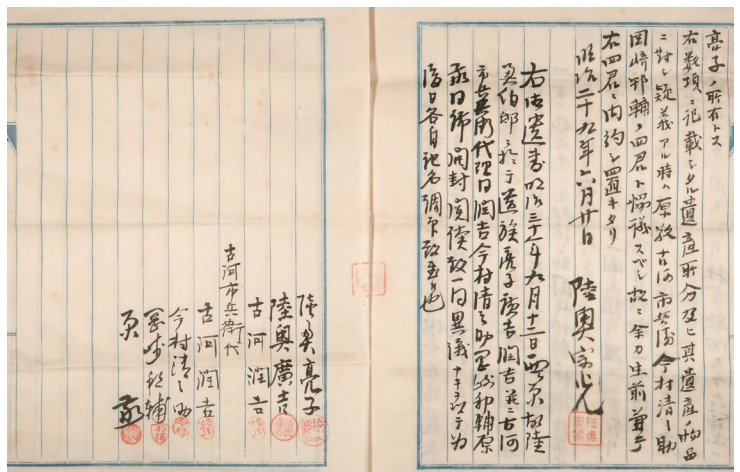 亮子ノ所有トス
右数項ニ記載シタル遺産所分及ヒ其遺産ノ物品
ニ対シ疑義アル時ハ原敬古河市兵衛今村清之助
岡崎邦輔ノ四君ト協議スベシ故ニ余カ生前兼テ
右四君ニ内約シ置キタリ
明治二十九年六月廿日
陸奥宗光
右御遺書明治三十年九月十二日西ヶ原故陸
奥伯邸ニ於テ遺族亮子廣吉潤吉并ニ古河
市兵衛代理日潤吉今村清之助岡崎邦輔原
敬日御開封閲読致一同異議ナキヲ以テ為
後日各自記名調印致置也
陸奥亮子
陸奥廣吉
古河潤吉
古河市兵衛代
古河潤吉
今村清之助
岡崎邦輔
原敬